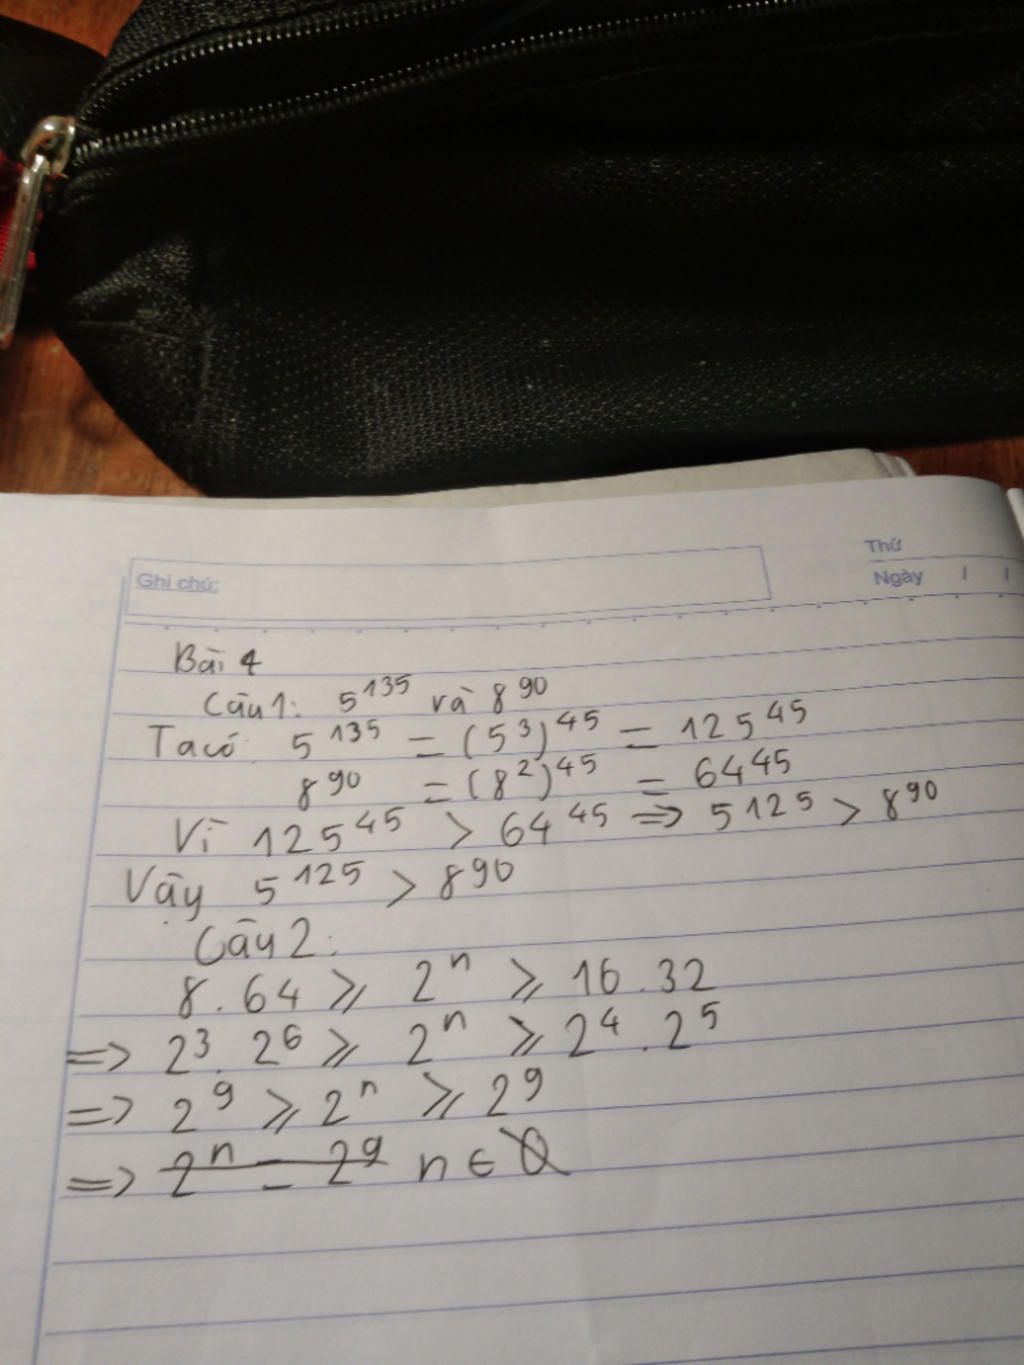 Thứ
Ghi chú:
Ngày / /
Bài 4
Câu 1: 5^135 và 8^90
Ta có: 5^135 = (5^3)^45 = 125^45
8^90 = (8^2)^45 = 64^45
Vì 125^45 > 64^45 => 5^125 > 8^90
Vậy 5^125 > 8^90
Câu 2:
8.64 ⩾ 2^n ⩾ 16.32
=> 2^3.2^6 ⩾ 2^n ⩾ 2^4.2^5
=> 2^9 ⩾ 2^n ⩾ 2^9
=> 2^n = 2^9 n ∈ Q